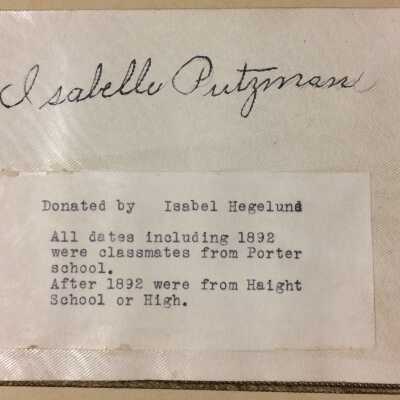 Isabelle Putzman
Donated by Isabel Hegelund
All dates including 1892
were classmates from Porter
school.
After 1892 were from Haight
School or High.